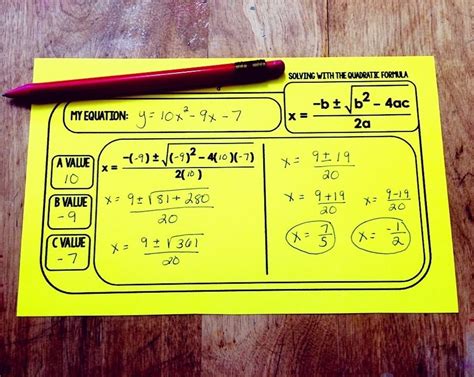 SOLVING WITH THE QUADRATIC FORMULA
MY EQUATION: y = 10x² - 9x - 7
x = -b ± √b² - 4ac / 2a
A VALUE
10
B VALUE
-9
C VALUE
-7
x = -(-9) ± √(-9)² - 4(10)(-7) / 2(10)
x = 9 ± √81 + 280 / 20
x = 9 ± √361 / 20
x = 9 ± 19 / 20
x = 9+19 / 20 x = 9-19 / 20
x = 7/5 x = -1/2